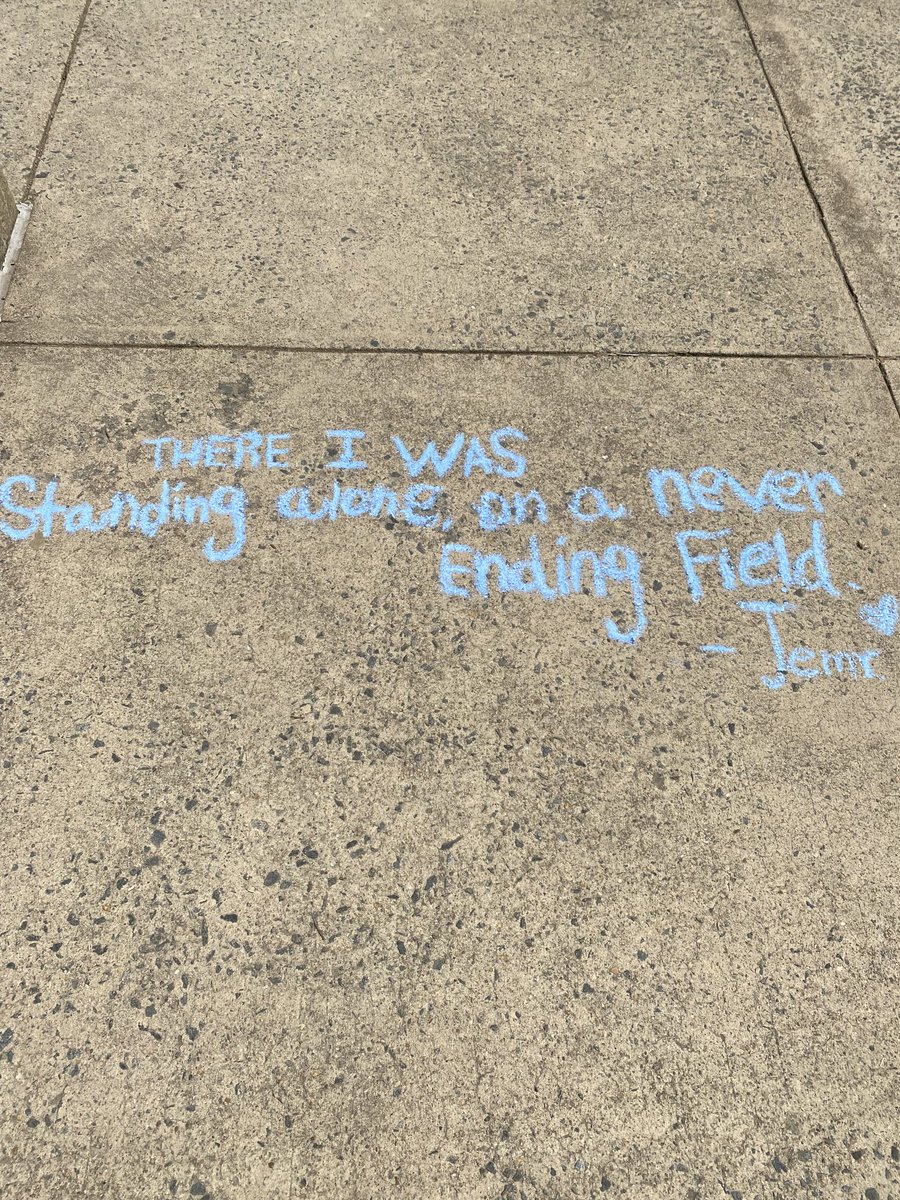 THERE I WAS
Standing alone, on a never
Ending Field.
- Jemr